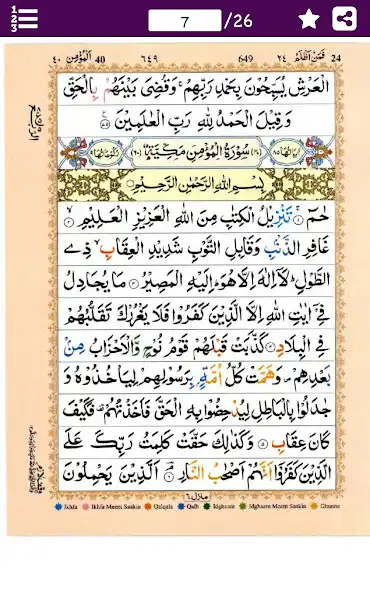 1 2 3
7
/26
٤٠ اَلْمُؤْمِن 40
٦٤٩
649
فَمَنْ اَظْلَمُ ٢٤ 24
الْعَرْشِ يُسَبِّحُوْنَ بِحَمْدِ رَبِّهِمْ ۚ وَقُضِىَ بَيْنَهُمْ بِالْحَقِّ
وَقِيْلَ الْحَمْدُ لِلّٰهِ رَبِّ الْعٰلَمِيْنَ
سُوْرَةُ الْمُؤْمِنِ مَكِّيَّةٌ
بِسْمِ اللّٰهِ الرَّحْمٰنِ الرَّحِيْمِ
حٰمٓ ۚ ١ تَنْزِيْلُ الْكِتٰبِ مِنَ اللّٰهِ الْعَزِيْزِ الْعَلِيْمِ ۙ ٢
غَافِرِ الذَّنْۢبِ وَقَابِلِ التَّوْبِ شَدِيْدِ الْعِقَابِ ۙ ذِى
الطَّوْلِ ؕ لَاۤ اِلٰهَ اِلَّا هُوَ ؕ اِلَيْهِ الْمَصِيْرُ ٣ مَا يُجَادِلُ
فِىْۤ اٰيٰتِ اللّٰهِ اِلَّا الَّذِيْنَ كَفَرُوْا فَلَا يَغْرُرْكَ تَقَلُّبُهُمْ
فِى الْبِلَادِ ٤ كَذَّبَتْ قَبْلَهُمْ قَوْمُ نُوْحٍ وَّالْاَحْزَابُ مِنْۢ
بَعْدِهِمْ ۪ وَهَمَّتْ كُلُّ اُمَّةٍۭ بِرَسُوْلِهِمْ لِيَاْخُذُوْهُ وَ
جٰدَلُوْا بِالْبَاطِلِ لِيُدْحِضُوْا بِهِ الْحَقَّ فَاَخَذْتُهُمْ ۫ فَكَيْفَ
كَانَ عِقَابِ ٥ وَكَذٰلِكَ حَقَّتْ كَلِمَتُ رَبِّكَ عَلَى
الَّذِيْنَ كَفَرُوْۤا اَنَّهُمْ اَصْحٰبُ النَّارِ ۘ ٦ اَلَّذِيْنَ يَحْمِلُوْنَ
منزل ٦
Ikhfa Ikhfa Meem Saakin Qalqala Qalb Idghaam Idghaam Meem Saakin Ghunna